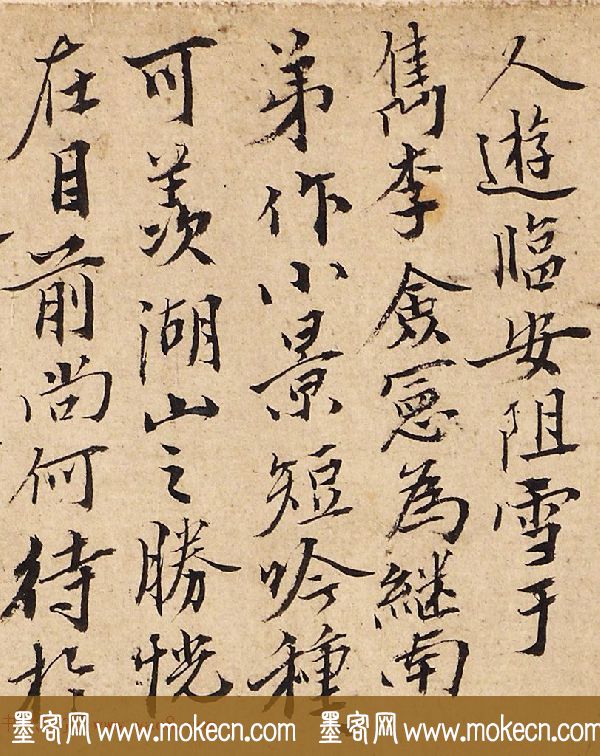 人遊臨安阻雪于
雋李僉憲為継南
弟作小景短吟種
可羨湖山之勝恍
在目前尚何待於
墨客网 www.mokecn.com 墨客网 www.mokecn.com